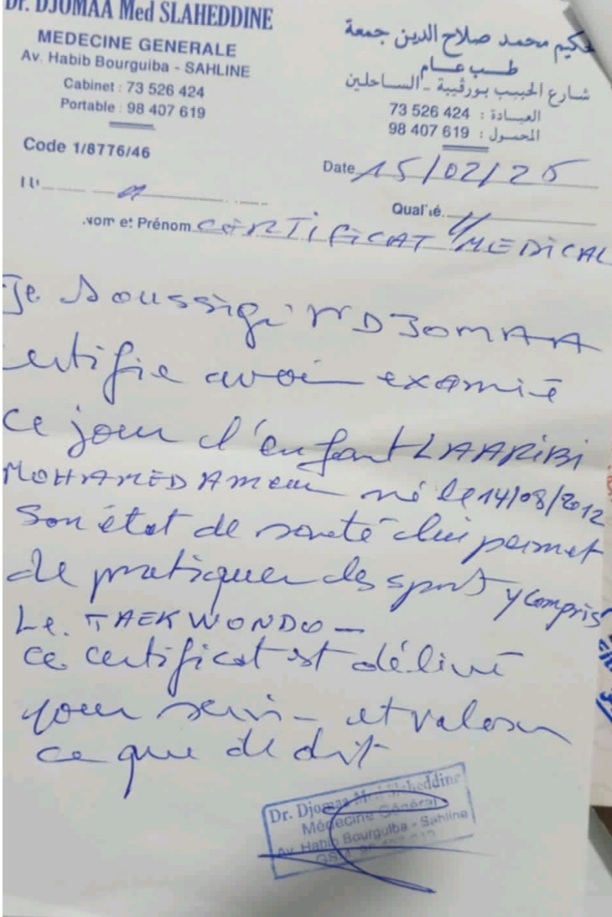 Dr. DJOMAA Med SLAHEDDINE
MEDECINE GENERALE
Av. Habib Bourguiba - SAHLINE
Cabinet : 73 526 424
Portable : 98 407 619
Code 1/8776/46
حكيم محمد صلاح الدين جمعة
طــب عـــام
شــارع الحبيب بورقيبة ـ الســاحلين
العيــادة : 424 526 73
المحمــول : 619 407 98
Date 15/02/25
Qualité
Nom et Prénom CERTIFICAT MEDICAL
Je soussigné Dr DJOMAA
certifie avoir examiné
ce jour l'enfant LAARIBI
MOHAMED AMEUR né le 14/08/2012
Son état de santé lui permet
de pratiquer des sport y compris
Le TAEKWONDO -
ce certificat est délivré
pour servir - et valoir
ce que de dit
Dr. Djomaa Med Slaheddine
Médecine Général
Av. Habib Bourguiba - Sahline
GSM